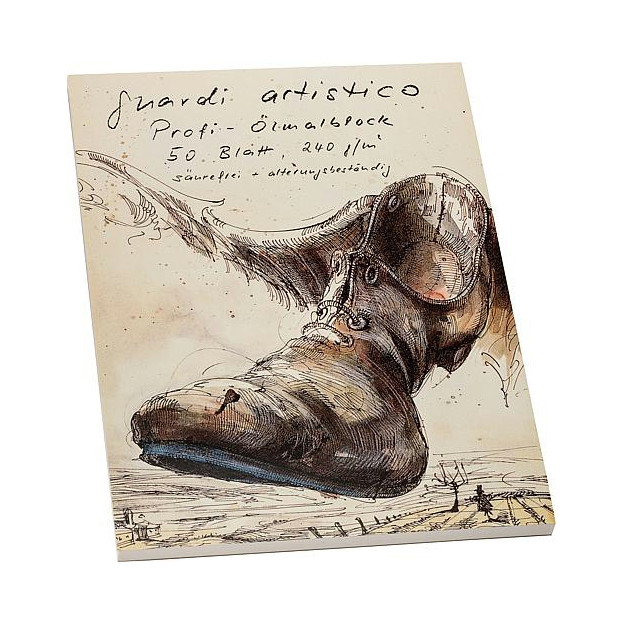 guardi artistico
Profi-Ölmalblock
50 Blatt, 240 g/m²
säurefrei + alterungsbeständig